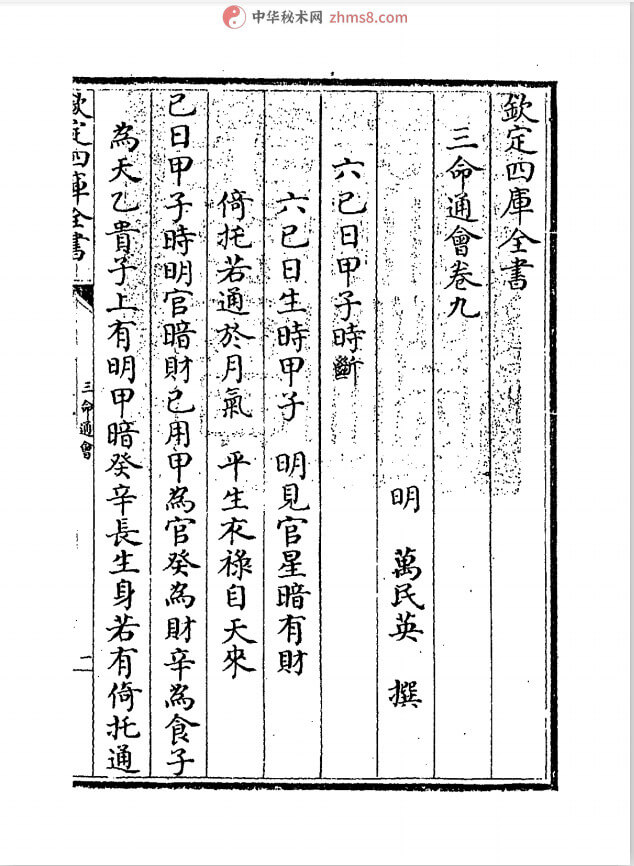 中华秘术网 zhms8.com
欽定四庫全書
三命通會卷九
明 萬民英 撰
六已日甲子時斷
六已日生時甲子 明見官星暗有財
倚托若通於月氣 平生衣祿自天來
已日甲子時明官暗財已用甲為官癸為財辛為食子
為天乙貴子上有明甲暗癸辛長生身若有倚托通
欽定四庫全書
三命通會
一